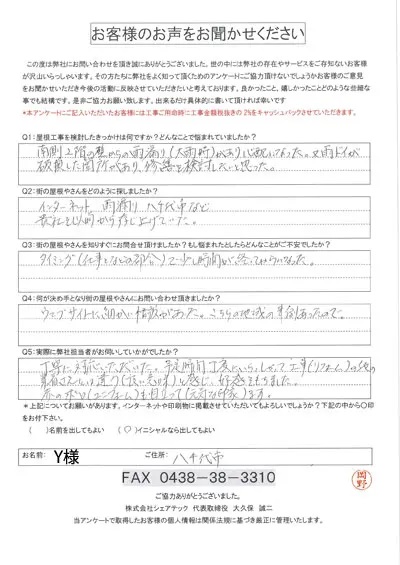 お客様のお声をお聞かせください
この度は弊社にお問い合わせを頂き誠にありがとうございました。世の中には弊社の存在やサービスをご存知ないお客様
が沢山いらっしゃいます。その方たちに弊社をよく知って頂くためのアンケートにご協力頂けないでしょうかお客様のご意見
をお聞かせいただき今後の活動に反映させていただきたいと考えております。良かったこと、嬉しかったことどのような些細な
事でも結構です。是非ご協力お願い致します。出来るだけ具体的に書いて頂ければ幸いです
*本アンケートにご記入いただいたお客様には工事ご用命時に工事金額税抜きの2%をキャッシュバックさせていただきます。
Q1:屋根工事を検討したきっかけは何ですか?どんなことで悩まれていましたか?
南側2階の壁からの雨漏り(大雨時)があり心配になった。又雨ドイが
破損した箇所があり、修繕を検討したいと思った。
Q2:街の屋根やさんをどのように探しましたか?
インターネット 雨漏り 八千代市など
貴社を以前から存じ上げていた。
Q3:街の屋根やさんを知りすぐにお問合せ頂けましたか?もし悩まれたとしたらどんなことがご不安でしたか?
タイミング(仕事などの都合)で少し時間が経ってからになった。
Q4:何が決め手となり街の屋根やさんにお問い合わせ頂きましたか?
ウェブサイトに細かい情報があった。こちらの地域の事例もあったので。
Q5:実際に弊社担当者がお伺いしていかがでしたか?
丁寧に対応いただいた。予定時間丁度にいらっしゃって工事(リフォーム)の他の
業者さんとは違う(良い意味)と感じ、好感をもちました。
赤の装い(ユニフォーム)も目立って(元気な印象)ます。
*上記についてお願いがあります。インターネットや印刷物に掲載させていただいてもよろしいでしょうか?下記の中から○印
をお付下さい。
( )名前を出してもよい (○)イニシャルなら出してもよい
お名前: Y様 ご住所: 八千代市
FAX 0438-38-3310
ご協力ありがとうございました。
株式会社シェアテック 代表取締役 大久保 誠二
当アンケートで取得したお客様の個人情報は関係法規に基づき厳正に管理いたします。
岡野